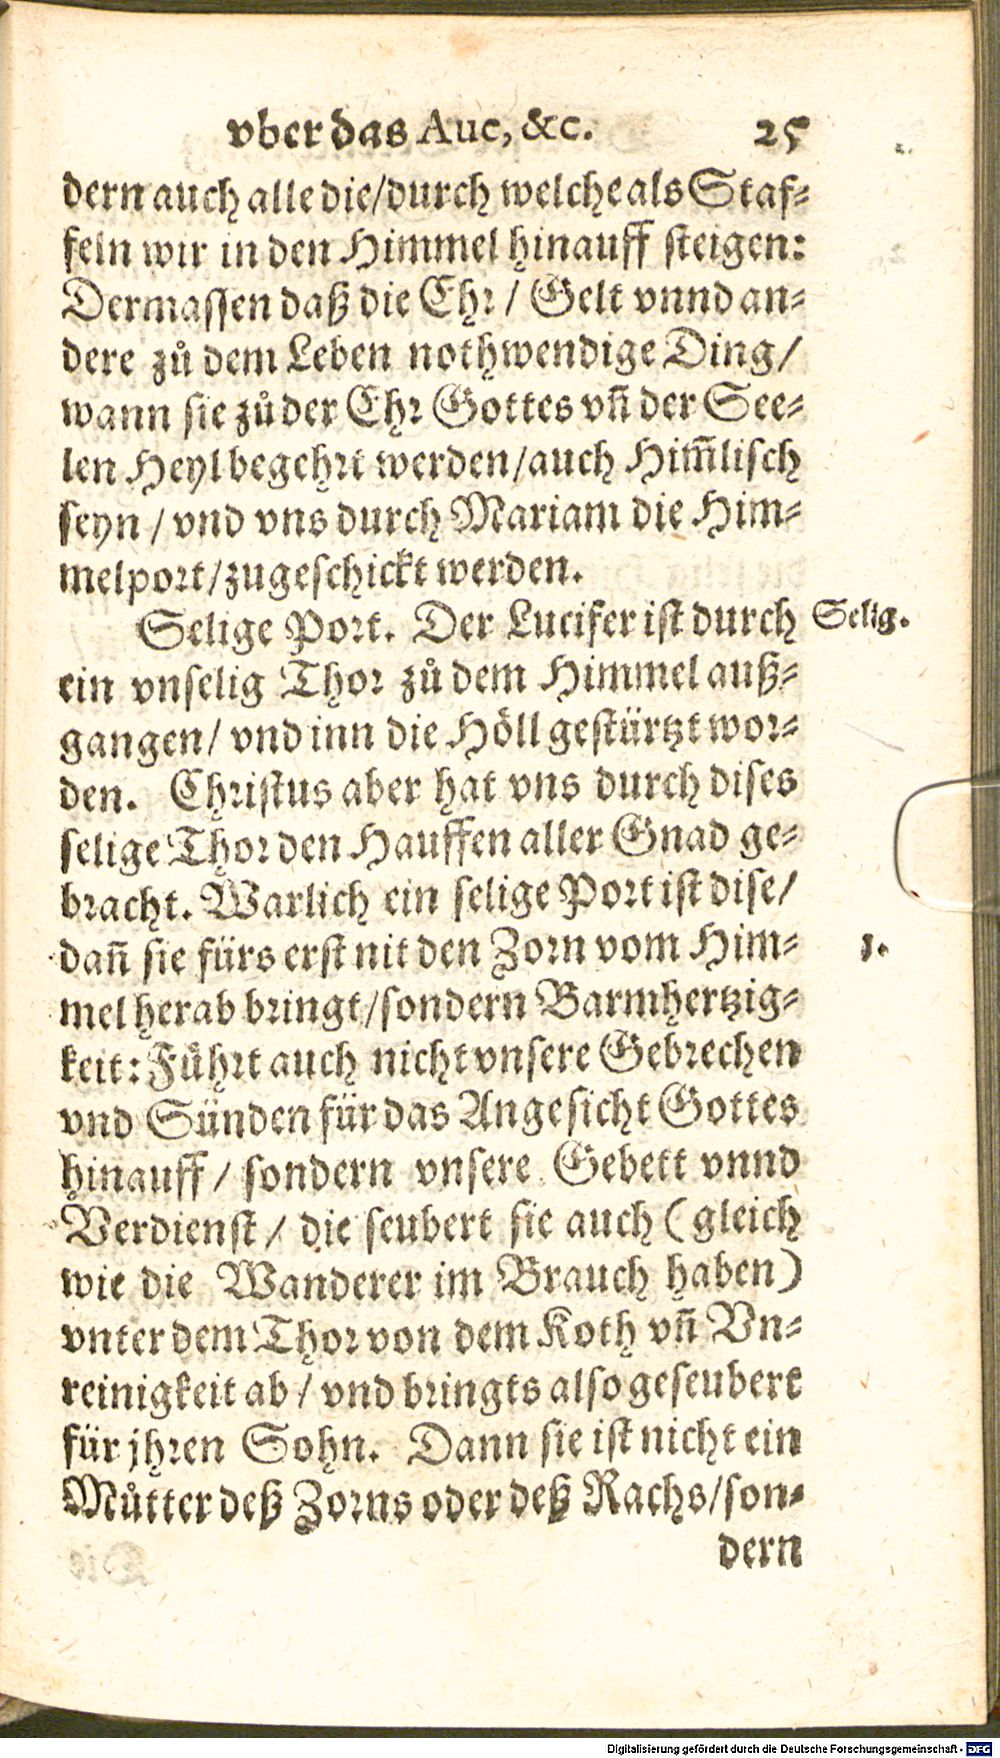 vber das Aue, &c. 25
dern auch alle die/durch welche als Staf⸗
feln wir in den Himmel hinauff steigen:
Dermassen daß die Ehr / Gelt vnnd an⸗
dere zů dem Leben nothwendige Ding/
wann sie zů der Ehr Gottes vñ der See⸗
len Heyl begehrt werden/auch Him̃lisch
seyn / vnd vns durch Mariam die Him⸗
melport/zugeschickt werden.
Selige Port. Der Lucifer ist durch Selig.
ein vnselig Thor zů dem Himmel auß⸗
gangen/ vnd inn die Höll gestürtzt wor⸗
den. Christus aber hat vns durch dises
selige Thor den Hauffen aller Gnad ge⸗
bracht. Warlich ein selige Port ist dise/
dañ sie fürs erst nit den Zorn vom Him⸗ 1.
mel herab bringt/sondern Barmhertzig⸗
keit: Führt auch nicht vnsere Gebrechen
vnd Sünden für das Angesicht Gottes
hinauff / sondern vnsere Gebett vnnd
Verdienst / die seubert sie auch ( gleich
wie die Wanderer im Brauch haben)
vnter dem Thor von dem Koth vñ Vn⸗
reinigkeit ab / vnd bringts also geseubert
für jhren Sohn. Dann sie ist nicht ein
Můtter deß Zorns oder deß Rachs/son⸗
dern
Digitalisierung gefördert durch die Deutsche Forschungsgemeinschaft - DFG